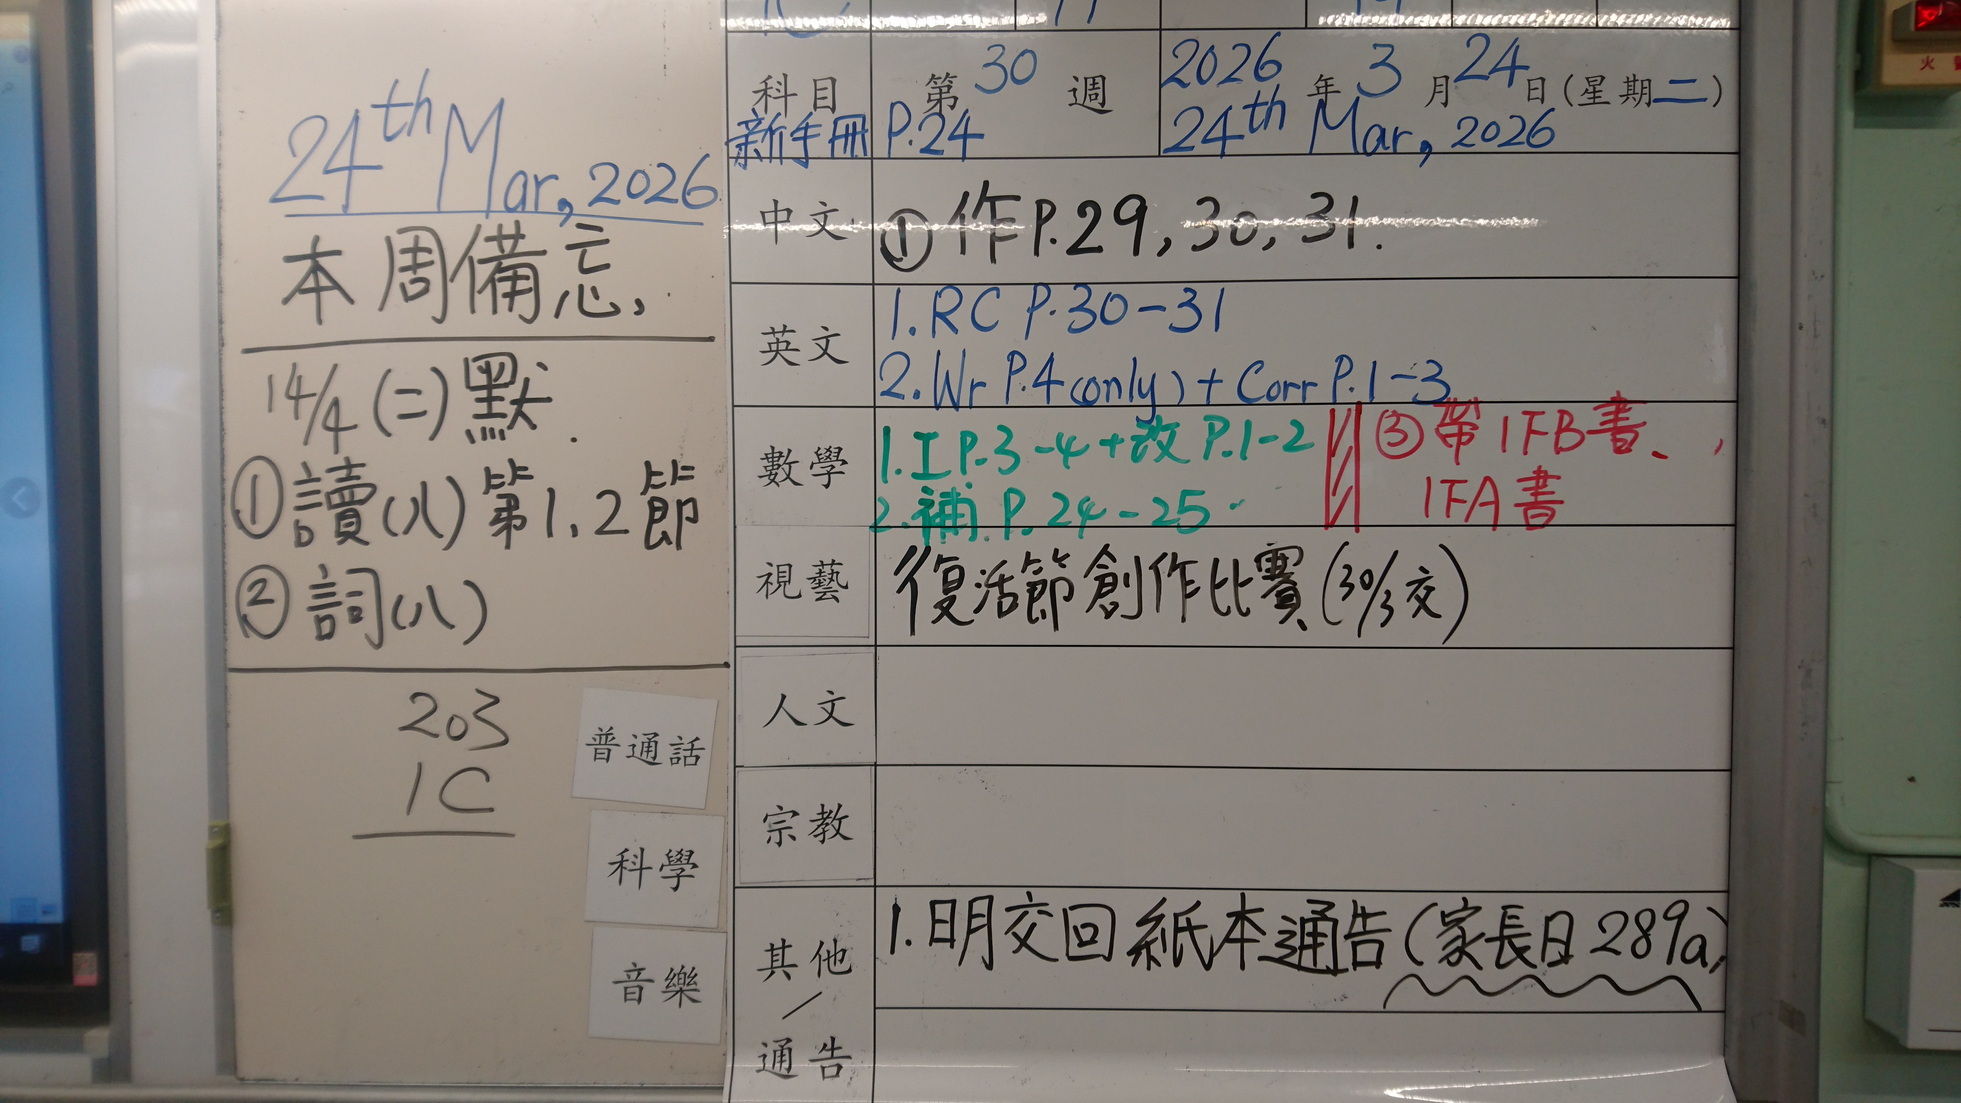 24th Mar, 2026
本周備忘,
14/4 (二) 默.
①讀(八)第1,2節
②詞(八)
203
1C
普通話
科學
音樂
科目 第30週 2026年3月24日(星期二)
新手冊 P.24 24th Mar, 2026
中文 ①作P.29, 30, 31.
英文 1. RC P.30-31
2. Wr P.4 (only) + Corr P.1-3
數學 1. 工P.3-4+改P.1-2 ③帶1FB書、
2. 補P.24-25. 1FA書
視藝 復活節創作比賽(30/3交)
人文
宗教
其他/通告 1. 明交回紙本通告(家長日289a)
火